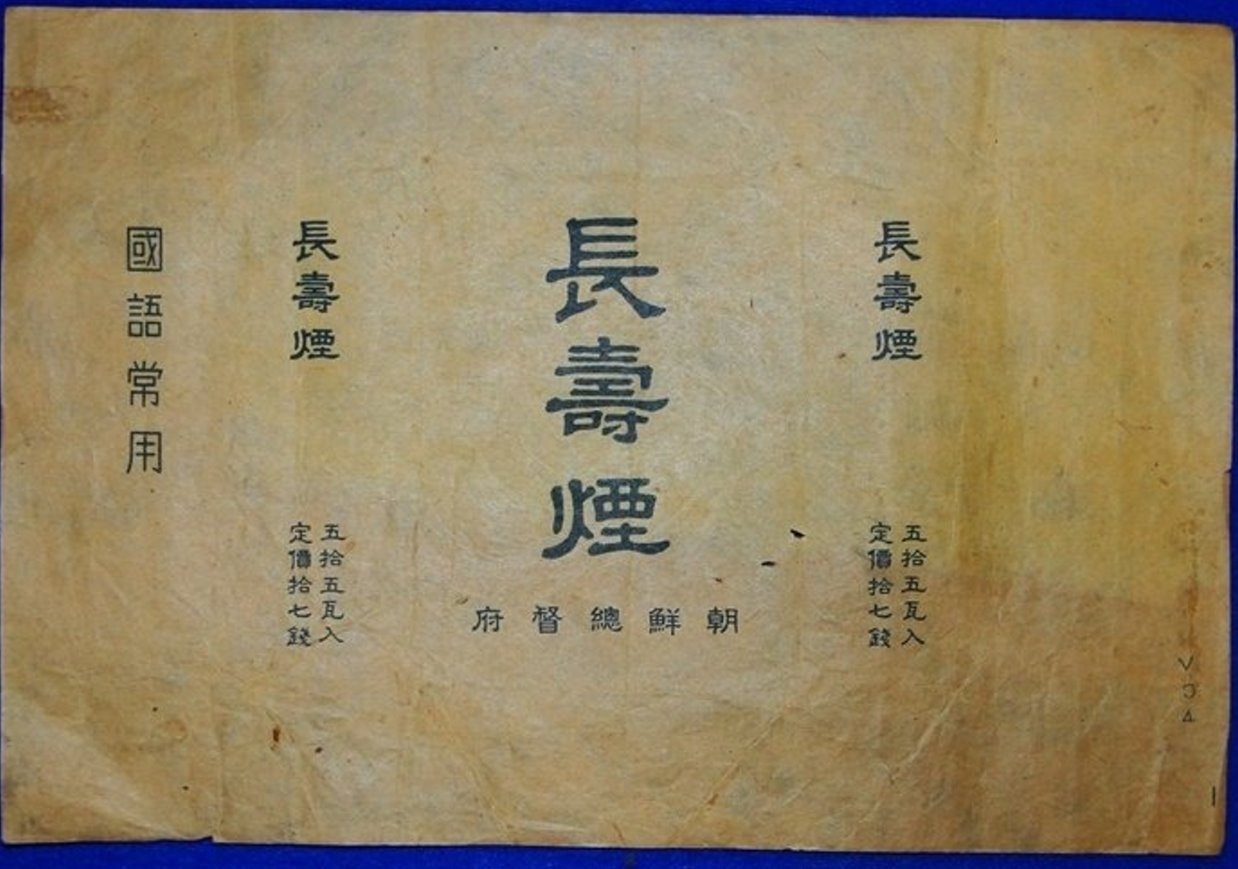 長壽煙
五拾五瓦入
定價拾七錢
長壽煙
朝鮮總督府
長壽煙
五拾五瓦入
定價拾七錢
國語常用